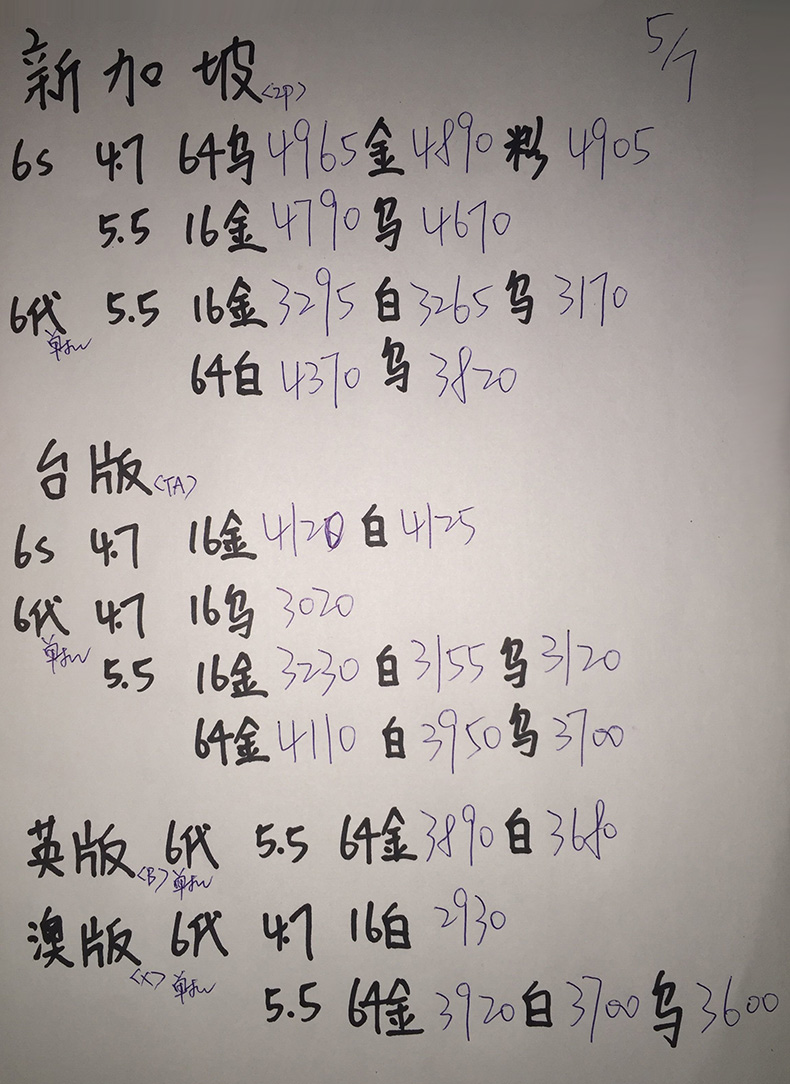 5/7
新加坡<ZP>
6s 4.7 64乌4965金4890粉4905
5.5 16金4790乌4670
6代 5.5 16金3295白3265乌3170
单hw
64白4370乌3820
台版<TA>
6s 4.7 16金4120白4125
6代 4.7 16乌3020
单hw
5.5 16金3230白3155乌3120
64金4110白3950乌3700
英版<B> 6代 5.5 64金3890白3680
单hw
澳版<X> 6代 4.7 16白2930
单hw
5.5 64金3920白3700乌3600